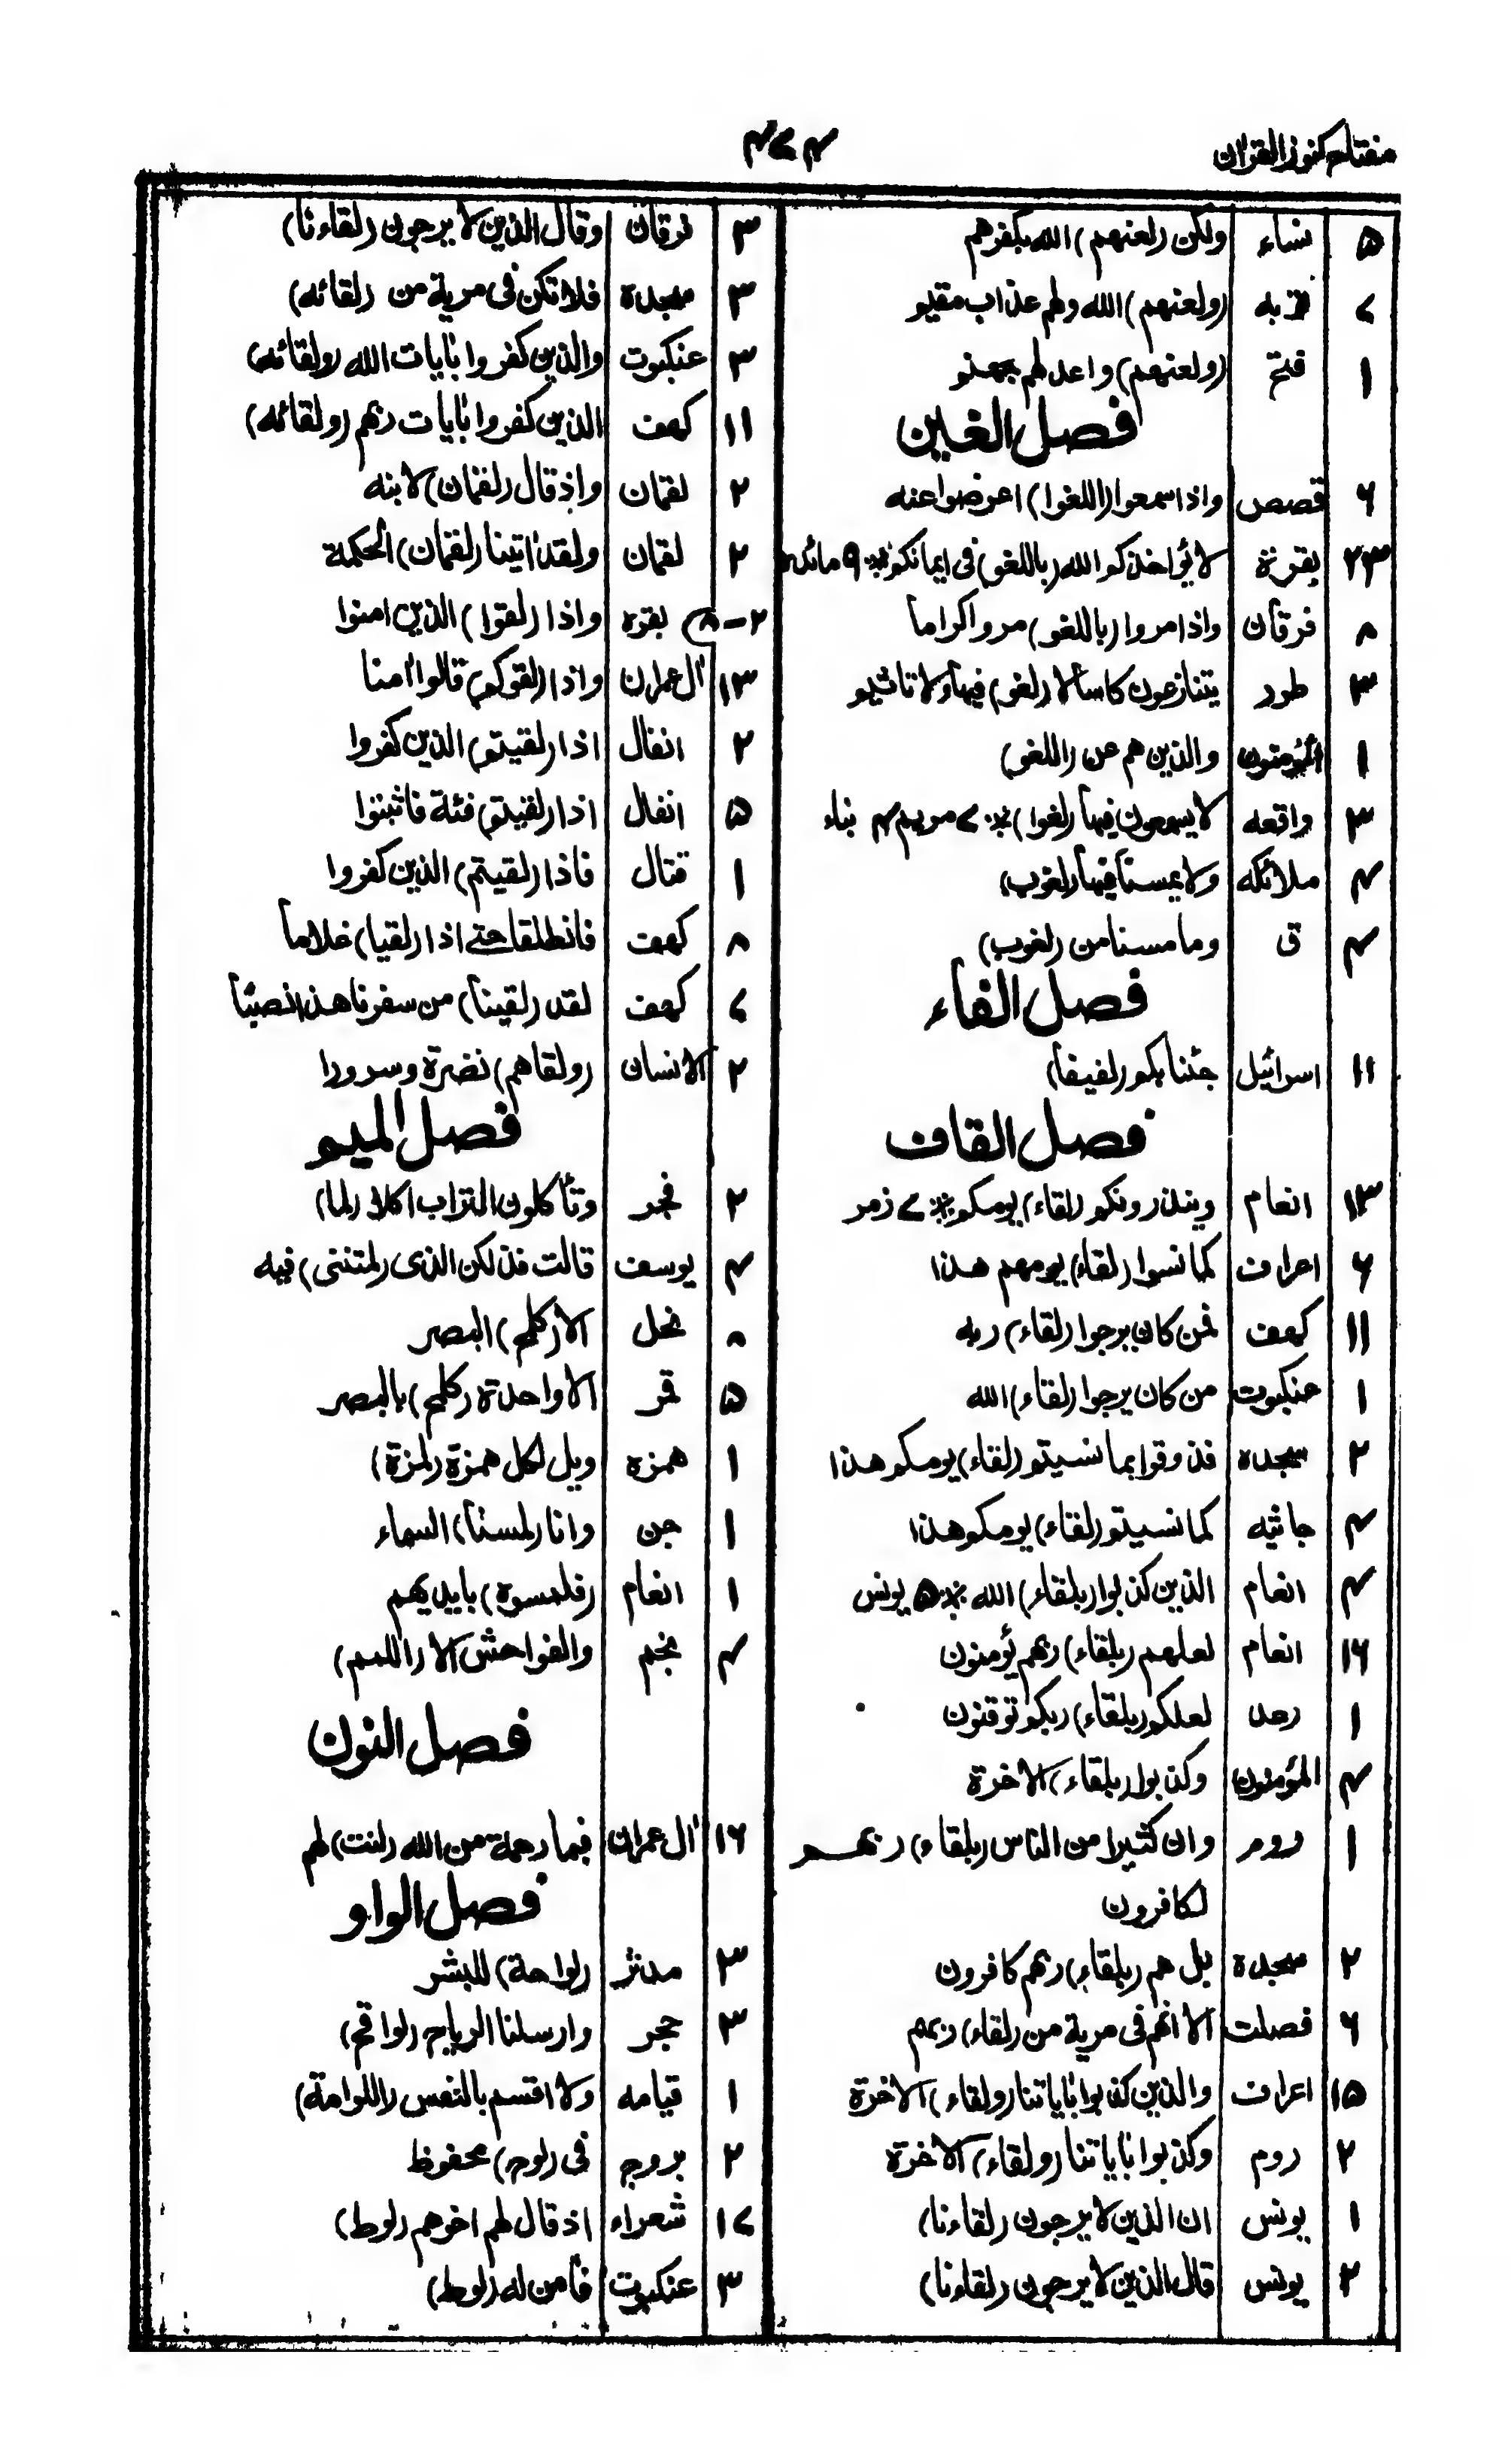 مفتاح كنوز القران
۴۷۴
۵ نساء ولكن (لعنهم) الله بكفرهم
۷ توبه (ولعنهم) الله ولهم عذاب مقيم
۱ فتح (ولعنهم) واعد لهم جهنم
فصل الغين
۶ قصص واذا سمعوا (اللغوا) اعرضوا عنه
۲۳ بقرة لا يؤاخذكم الله (باللغو) فى ايمانكم ⁘ ۹ مائده
۸ فرقان واذا مروا (باللغو) مروا كراما
۳ طور يتنازعون كاسا لا (لغو) فيها ولا تاثيم
۱ المؤمنون والذين هم عن (اللغو)
۳ واقعه لا يسمعون فيها (لغوا) ⁘ ۷ مريم ۴ نباء
۴ ملائكه ولا يمسنا فيها (لغوب)
۴ ق وما مسنا من (لغوب)
فصل الفاء
۱۱ اسرائيل جئنا بكم (لفيفا)
فصل القاف
۱۳ انعام وينذرونكم (لقاء) يومكم ⁘ ۷ زمر
۶ اعراف كما نسوا (لقاء) يومهم هذا
۱۱ كهف فمن كان يرجوا (لقاء) ربه
۱ عنكبوت من كان يرجوا (لقاء) الله
۲ سجده فذوقوا بما نسيتم (لقاء) يومكم هذا
۴ جاثيه كما نسيتم (لقاء) يومكم هذا
۴ انعام الذين كذبوا (بلقاء) الله ⁘ ۵ يونس
۱۶ انعام لعلهم (بلقاء) ربهم يؤمنون
۱ رعد لعلكم (بلقاء) ربكم توقنون
۴ المؤمنون وكذبوا (بلقاء) الاخرة
۱ روم وان كثيرا من الناس (بلقاء) ربهم
لكافرون
۲ سجدة بل هم (بلقاء) ربهم كافرون
۶ فصلت الا انهم فى مرية من (لقاء) ربهم
۱۵ اعراف والذين كذبوا بٰاياتنا (ولقاء) الاخرة
۲ روم وكذبوا بٰاياتنا (ولقاء) الاخرة
۱ يونس ان الذين لا يرجون (لقاءنا)
۲ يونس قال الذين لا يرجون (لقاءنا)
۳ فرقان وقال الذين لا يرجون (لقاءنا)
۳ سجدة فلا تكن فى مرية من (لقائه)
۳ عنكبوت والذين كفروا بٰايات الله (ولقائه)
۱۱ كهف الذين كفروا بٰايات ربهم (ولقائه)
۲ لقمان واذ قال (لقمان) لابنه
۲ لقمان ولقد اٰتينا (لقمان) الحكمة
۲-۸ بقره واذا (لقوا) الذين امنوا
۱۳ اٰل عمران واذا (لقوكم) قالوا اٰمنا
۲ انفال اذا (لقيتم) الذين كفروا
۵ انفال اذا (لقيتم) فئة فاثبتوا
۱ قتال فاذا (لقيتم) الذين كفروا
۸ كهف فانطلقا حتے اذا (لقيا) غلاما
۷ كهف لقد (لقينا) من سفرنا هذا نصبًا
۲ الانسان (ولقاهم) نضرة وسرورا
فصل الميم
۲ فجر وتأكلون التراب اكلا (لما)
۴ يوسف قالت فذلكن الذى (لمتننى) فيه
۸ نحل الا (كلمح) البصر
۵ قمر الا واحدة (كلمح) بالبصر
۱ همزه ويل لكل همزة (لمزة)
۱ جن وانا (لمسنا) السماء
۱ انعام (فلمسوه) بايديهم
۴ نجم والفواحش الا (اللمم)
فصل النون
۱۶ اٰل عمران فبما رحمة من الله (لنت) لهم
فصل الواو
۳ مدثر (لواحة) للبشر
۳ حجر وارسلنا الرياح (لواقح)
۱ قيامه ولا اقسم بالنفس (اللوامة)
۲ بروج فى (لوح) محفوظ
۱۷ شعراء اذ قال لهم اخوهم (لوط)
۳ عنكبوت فأمن له (لوط)